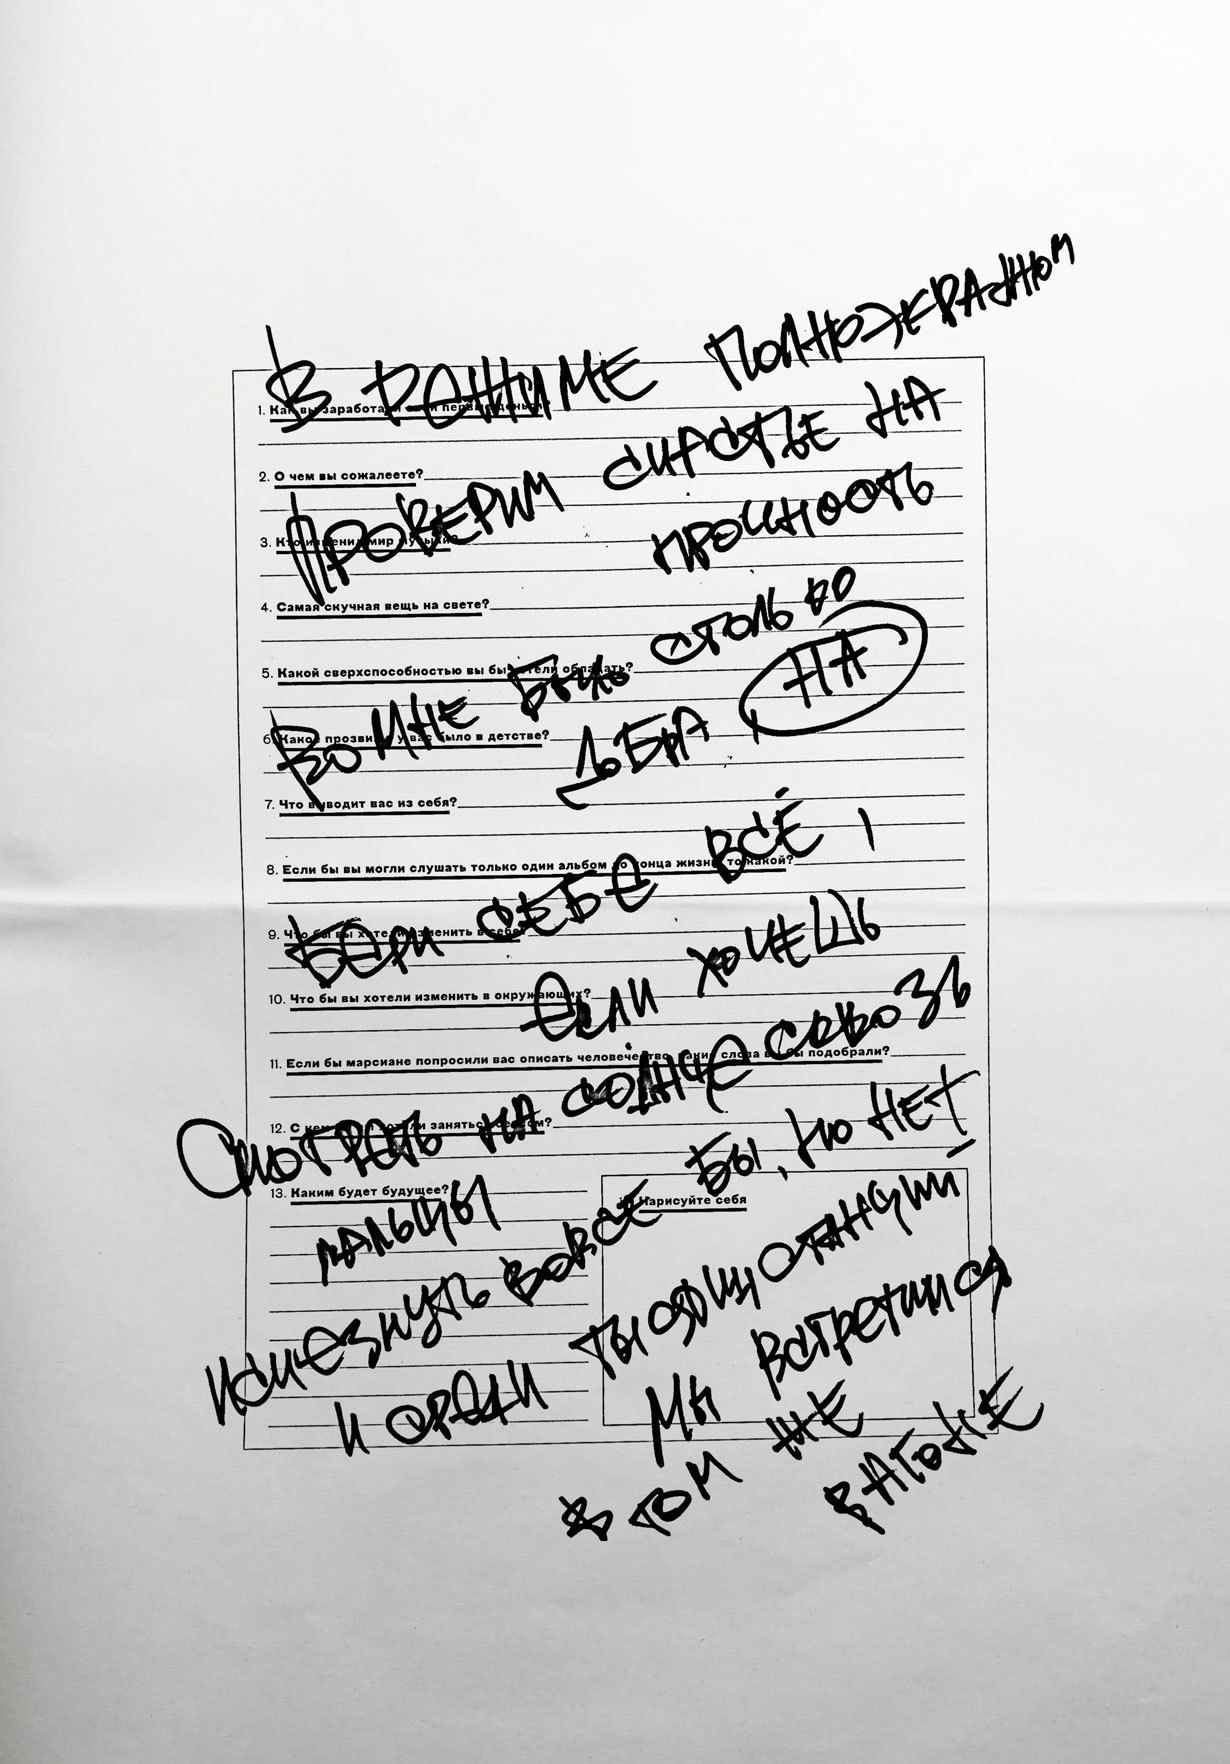 В РЕЖИМЕ ПОЛНОЭКРАННОМ
ПРОВЕРИМ СЧАСТЬЕ НА
ПРОЧНОСТЬ
ВО МНЕ БЫЛО СТОЛЬКО
ДОБРА НА
БЕРИ СЕБЕ ВСЁ,
ЕСЛИ ХОЧЕШЬ
СМОТРЕТЬ НА СОЛНЦЕ СКВОЗЬ
ПАЛЬЦЫ
ИСЧЕЗНУТЬ ВОВСЕ БЫ, НО НЕТ
И СРЕДИ ТЫСЯЧИ СТАНЦИЙ
МЫ ВСТРЕТИМСЯ
В ТОМ ЖЕ
ВАГОНЕ
1. Как вы заработали свои первые деньги?
2. О чем вы сожалеете?
3. Кто изменил мир музыки?
4. Самая скучная вещь на свете?
5. Какой сверхспособностью вы бы хотели обладать?
6. Какое прозвище у вас было в детстве?
7. Что выводит вас из себя?
8. Если бы вы могли слушать только один альбом до конца жизни, то какой?
9. Что бы вы хотели изменить в себе?
10. Что бы вы хотели изменить в окружающих?
11. Если бы марсиане попросили вас описать человечество, какие слова вы бы подобрали?
12. С кем заняться
13. Каким будет будущее?
Нарисуйте себя